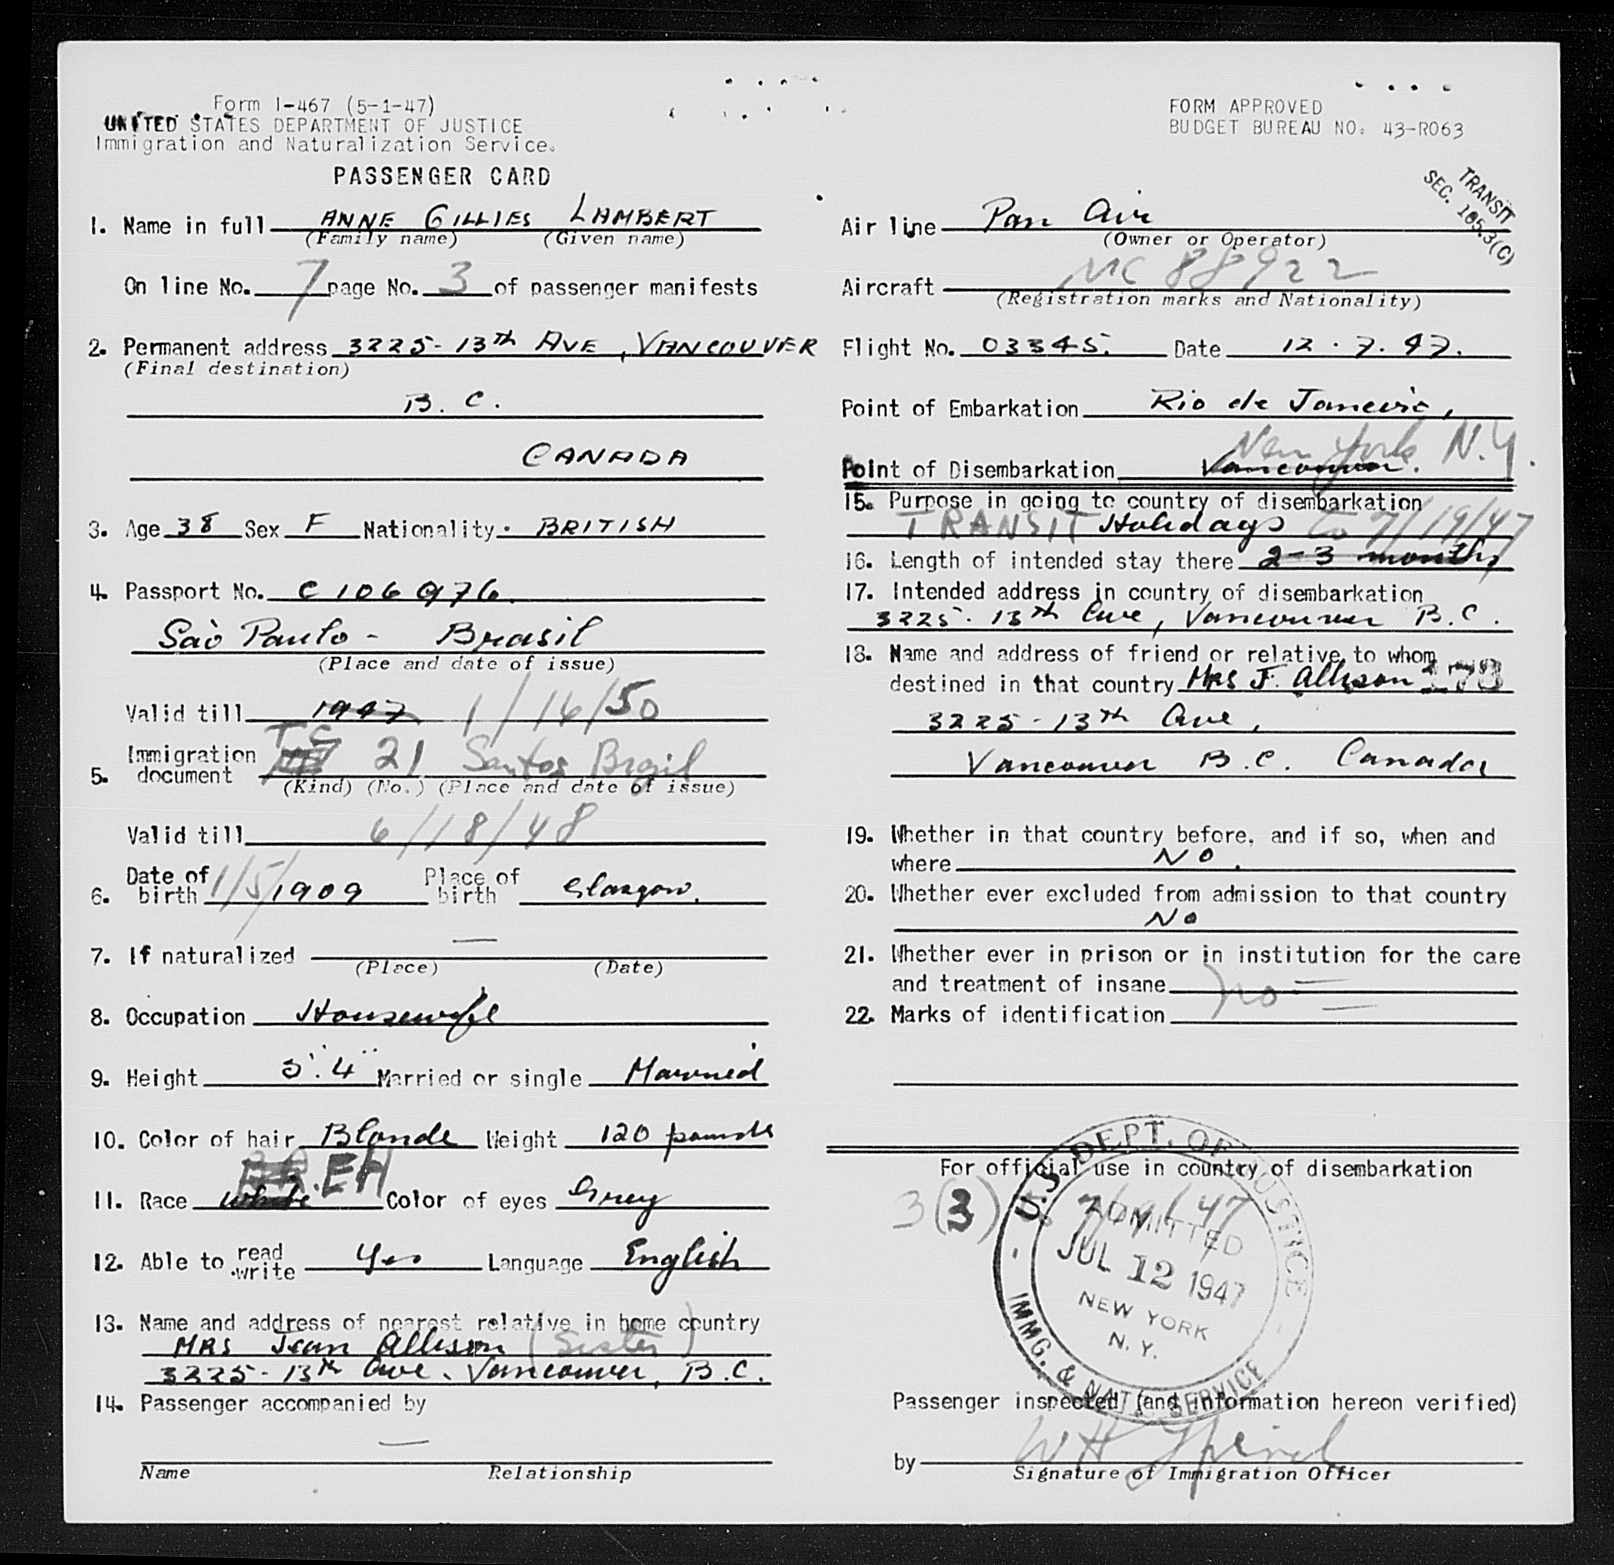 Form I-467 (5-1-47)
UNITED STATES DEPARTMENT OF JUSTICE
Immigration and Naturalization Service.
PASSENGER CARD
1. Name in full ANNE GILLIES LAMBERT
(Family name) (Given name)
On line No. 7 page No. 3 of passenger manifests
2. Permanent address 3225-13th AVE, VANCOUVER
(Final destination)
B.C.
CANADA
3. Age 38 Sex F Nationality. BRITISH
4. Passport No. C 106976.
São Paulo - Brasil
(Place and date of issue)
Valid till 1947 1/16/50
5. Immigration document T.C 21 Santos Brazil
(Kind) (No.) (Place and date of issue)
Valid till 6/18/48
6. Date of birth 1/5/1909 Place of birth Glasgow.
7. If naturalized —
(Place) (Date)
8. Occupation Housewife
9. Height 5'.4" Married or single Married
10. Color of hair Blonde Weight 120 pounds
11. Race white EH Color of eyes Grey
12. Able to read write Yes Language English
13. Name and address of nearest relative in home country
MRS Jean Allison (Sister)
3225-13th Ave. Vancouver, B.C.
14. Passenger accompanied by
—
Name Relationship
FORM APPROVED
BUDGET BUREAU NO. 43-R063
TRANSIT
SEC. 165.3(C)
Air line Pan Air
(Owner or Operator)
Aircraft NC 88922
(Registration marks and Nationality)
Flight No. 03345. Date 12.7.47.
Point of Embarkation Rio de Janeiro,
New York N.Y.
Point of Disembarkation Vancouver.
15. Purpose in going to country of disembarkation
TRANSIT Holidays to 7/19/47
16. Length of intended stay there 2-3 months
17. Intended address in country of disembarkation
3225-13th Ave, Vancouver B.C.
18. Name and address of friend or relative to whom
destined in that country Mrs F. Allison 173
3225-13th Ave,
Vancouver B.C. Canada
19. Whether in that country before, and if so, when and
where No.
20. Whether ever excluded from admission to that country
No
21. Whether ever in prison or in institution for the care
and treatment of insane no
22. Marks of identification —
For official use in country of disembarkation
3(3) to 7/19/47
U.S. DEPT. OF JUSTICE
ADMITTED
JUL 12 1947
NEW YORK
N.Y.
IMMG. & NAT. SERVICE
Passenger inspected (and information hereon verified)
by WH
Signature of Immigration Officer